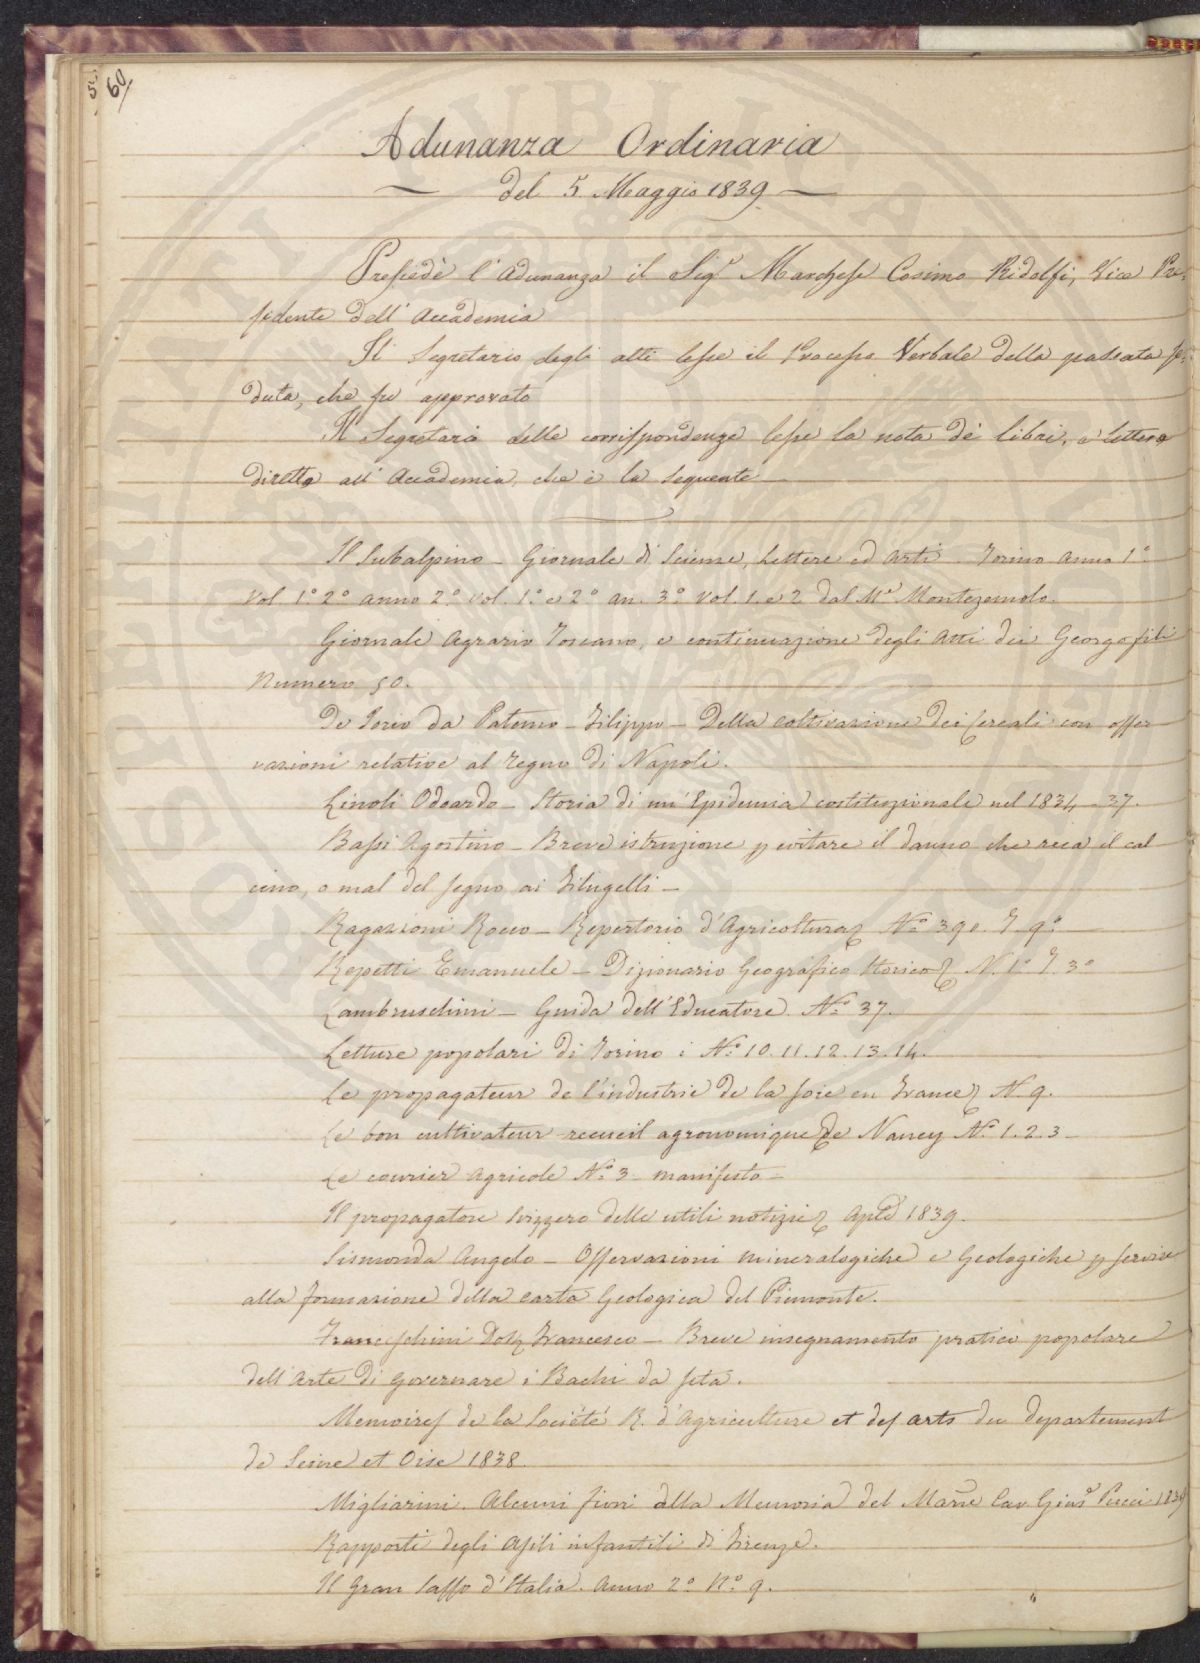 60/
Adunanza Ordinaria
del 5. Maggio 1839
Presiedè l'Adunanza il Sigr Marchese Cosimo Ridolfi, Vice Pre-
sidente dell'Accademia
Il Segretario degli atti lesse il Processo Verbale della passata Se-
duta, che fù approvato
Il Segretario delle corrispondenze lesse la nota de' libri, e lettere
dirette all'Accademia, che è la seguente
Il Subalpino - Giornale di Scienze, Lettere ed Arti. Torino anno 1°
Vol. 1° 2° anno 2° Vol. 1° e 2° an. 3° Vol. 1. e 2 dal Me Montezemolo.
Giornale Agrario Toscano, e continuazione degli Atti dei Georgofili
Numero 50.
De Jorio da Paterno - Filippo - Della coltivazione dei Cereali con osser
vazioni relative al regno di Napoli.
Linoli Odoardo - Storia di un'Epidemia costituzionale nel 1834 - 37.
Bassi Agostino - Breve istruzione p evitare il danno che reca il cal
cino, o mal del segno ai Filugelli -
Ragazzoni Rocco - Repertorio d'Agricoltura No 39. T. 9°
Repetti Emanuele - Dizionario Geografico Storico N. 1° T. 3°
Lambruschini - Guida dell'Educatore. No 37.
Letture popolari di Torino i No 10. 11. 12. 13. 14.
Le propagateur de l'industrie de la soie en France N. 9.
Le bon cultivateur recueil agronomique de Nancy No 1. 2. 3 -
Le courier agricole No 3 - manifesto -
Il propagatore Svizzero delle utili notizie 1839.
Sismonda Angelo - Osservazioni mineralogiche e Geologiche p servire
alla formazione della carta Geologica del Piemonte.
Franceschini Francesco - Breve insegnamento pratico popolare
dell'Arte di governare i Bachi da seta.
Memoires de la Société R. d'Agriculture et des arts du departement
de Seine et Oise 1838.
Migliarini. Alcuni fiori alla Memoria del Cav Pucci
Rapporti degli Asili infantili di Firenze.
Il Gran Sasso d'Italia. Anno 2° No 9.